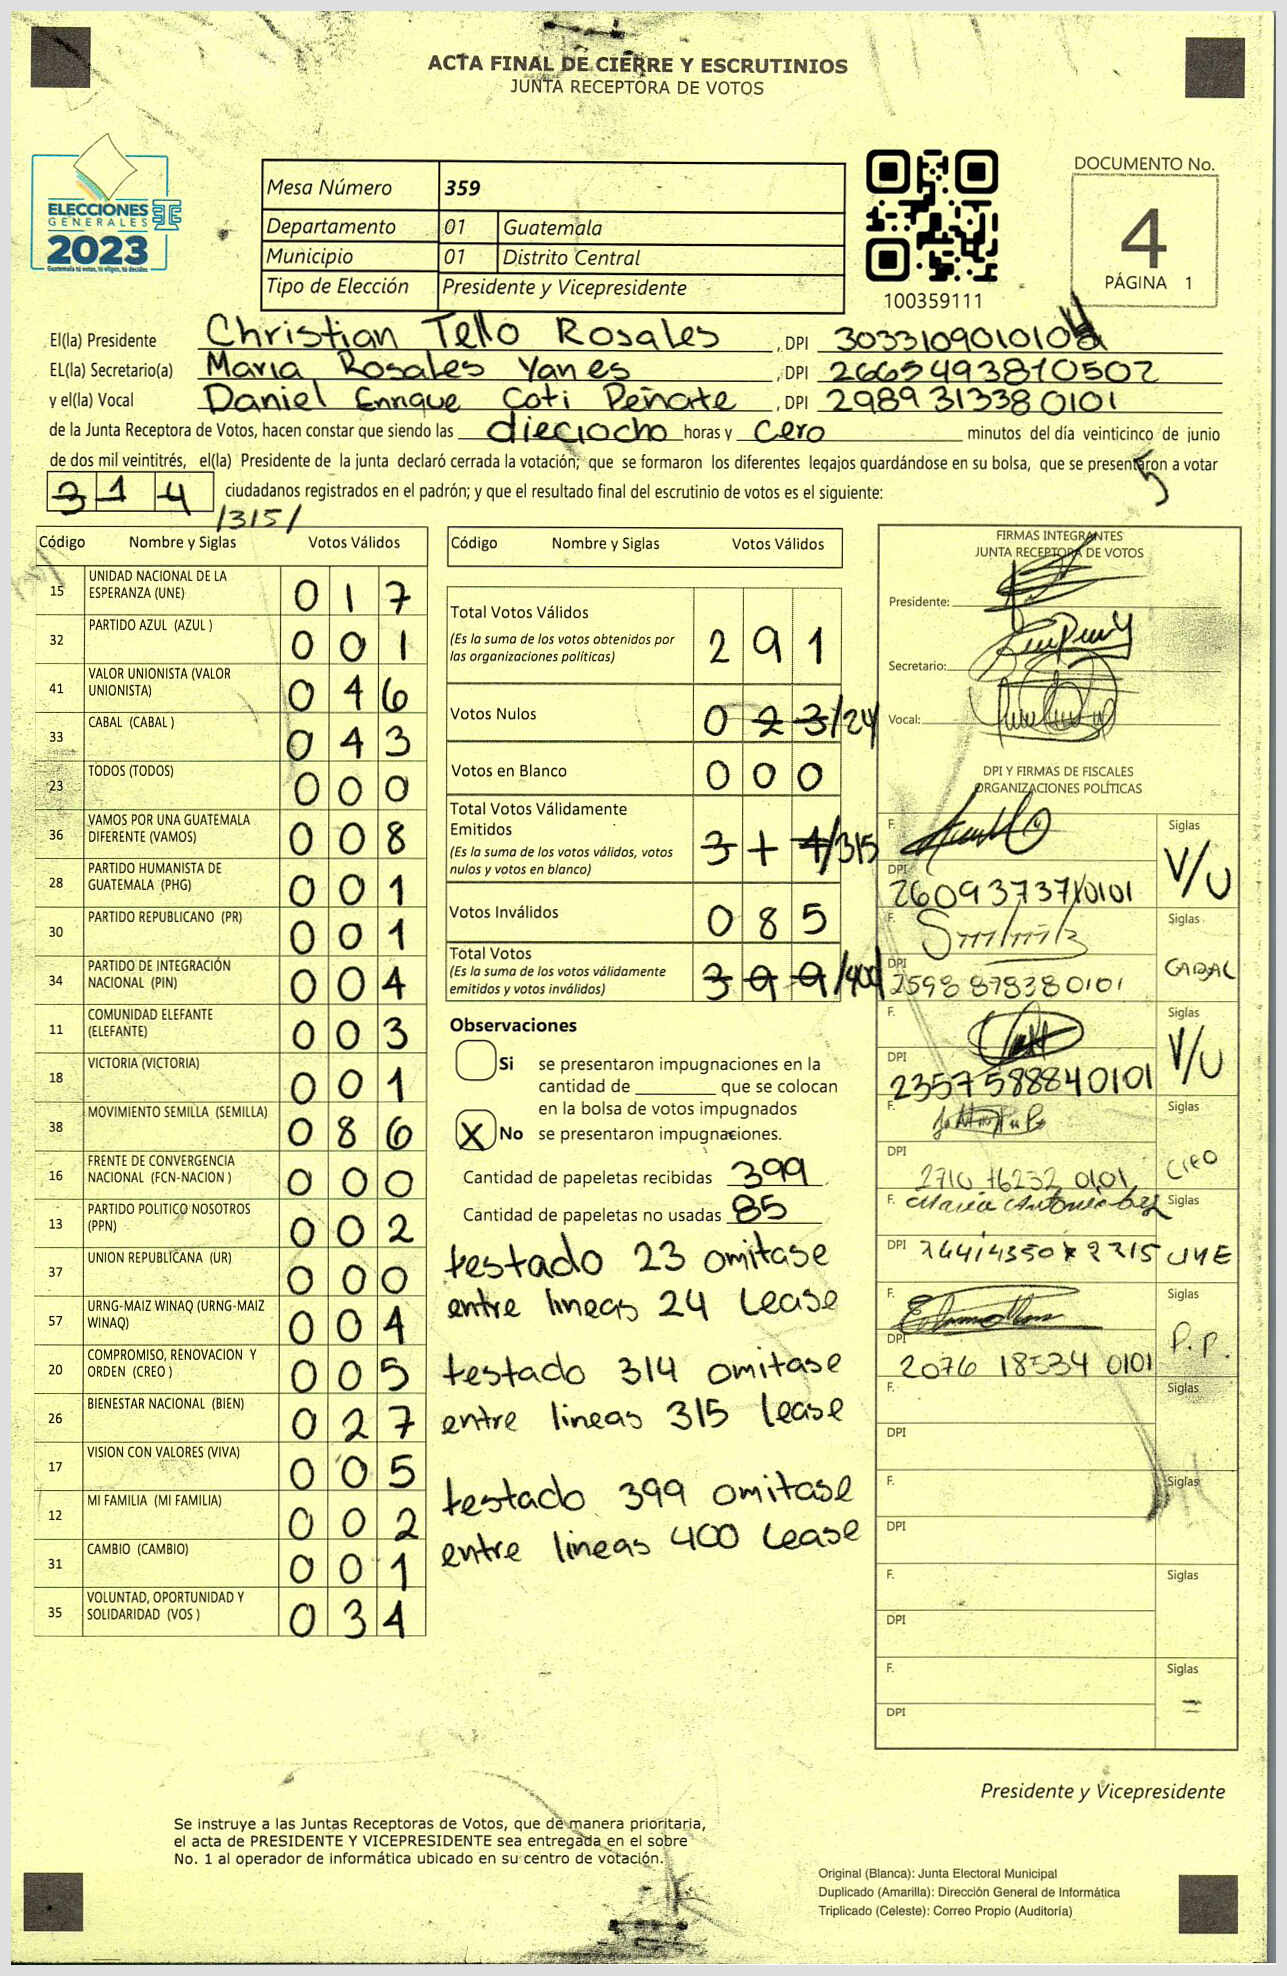 ACTA FINAL DE CIERRE Y ESCRUTINIOS
JUNTA RECEPTORA DE VOTOS
ELECCIONES
GENERALES
2023
Guatemala tú votas, tú eliges, tú decides
Mesa Número 359
Departamento 01 Guatemala
Municipio 01 Distrito Central
Tipo de Elección Presidente y Vicepresidente
100359111
DOCUMENTO No.
4
PÁGINA 1
El(la) Presidente Christian Tello Rosales , DPI
EL(la) Secretario(a) Maria Rosales Yanes , DPI 2665493810502
y el(la) Vocal Daniel Enrique Coti Peñate , DPI 2989313380101
de la Junta Receptora de Votos, hacen constar que siendo las dieciocho horas y cero minutos del día veinticinco de junio
de dos mil veintitrés, el(la) Presidente de la junta declaró cerrada la votación; que se formaron los diferentes legajos guardándose en su bolsa, que se presentaron a votar
314 ciudadanos registrados en el padrón; y que el resultado final del escrutinio de votos es el siguiente:
/315/
Código Nombre y Siglas Votos Válidos
15 UNIDAD NACIONAL DE LA ESPERANZA (UNE) 0 1 7
32 PARTIDO AZUL (AZUL ) 0 0 1
41 VALOR UNIONISTA (VALOR UNIONISTA) 0 4 6
33 CABAL (CABAL ) 0 4 3
23 TODOS (TODOS) 0 0 0
36 VAMOS POR UNA GUATEMALA DIFERENTE (VAMOS) 0 0 8
28 PARTIDO HUMANISTA DE GUATEMALA (PHG) 0 0 1
30 PARTIDO REPUBLICANO (PR) 0 0 1
34 PARTIDO DE INTEGRACIÓN NACIONAL (PIN) 0 0 4
11 COMUNIDAD ELEFANTE (ELEFANTE) 0 0 3
18 VICTORIA (VICTORIA) 0 0 1
38 MOVIMIENTO SEMILLA (SEMILLA) 0 8 6
16 FRENTE DE CONVERGENCIA NACIONAL (FCN-NACION ) 0 0 0
13 PARTIDO POLITICO NOSOTROS (PPN) 0 0 2
37 UNION REPUBLICANA (UR) 0 0 0
57 URNG-MAIZ WINAQ (URNG-MAIZ WINAQ) 0 0 4
20 COMPROMISO, RENOVACION Y ORDEN (CREO ) 0 0 5
26 BIENESTAR NACIONAL (BIEN) 0 2 7
17 VISION CON VALORES (VIVA) 0 0 5
12 MI FAMILIA (MI FAMILIA) 0 0 2
31 CAMBIO (CAMBIO) 0 0 1
35 VOLUNTAD, OPORTUNIDAD Y SOLIDARIDAD (VOS ) 0 3 4
Código Nombre y Siglas Votos Válidos
Total Votos Válidos 2 9 1
(Es la suma de los votos obtenidos por
las organizaciones políticas)
Votos Nulos 0 2 3/24
Votos en Blanco 0 0 0
Total Votos Válidamente
Emitidos 3 1 4/315
(Es la suma de los votos válidos, votos
nulos y votos en blanco)
Votos Inválidos 0 8 5
Total Votos 3 9 9/400
(Es la suma de los votos válidamente
emitidos y votos inválidos)
Observaciones
Si se presentaron impugnaciones en la
cantidad de ________ que se colocan
en la bolsa de votos impugnados
X No se presentaron impugnaciones.
Cantidad de papeletas recibidas 399
Cantidad de papeletas no usadas 85
testado 23 omitase
entre lineas 24 Lease
testado 314 omitase
entre lineas 315 lease
testado 399 omitase
entre lineas 400 Lease
FIRMAS INTEGRANTES
JUNTA RECEPTORA DE VOTOS
Presidente:
Secretario:
Vocal:
DPI Y FIRMAS DE FISCALES
ORGANIZACIONES POLÍTICAS
F. Siglas
V/U
DPI
F. Siglas
CABAL
DPI 2598878380101
F. Siglas
V/U
DPI 2357588840101
F. Siglas
CREO
DPI
F. Siglas
UNE
DPI
F. Siglas
P.P.
DPI 2076 18534 0101
F. Siglas
DPI
F. Siglas
DPI
F. Siglas
DPI
F. Siglas
DPI
Presidente y Vicepresidente
Se instruye a las Juntas Receptoras de Votos, que de manera prioritaria,
el acta de PRESIDENTE Y VICEPRESIDENTE sea entregada en el sobre
No. 1 al operador de informática ubicado en su centro de votación.
Original (Blanca): Junta Electoral Municipal
Duplicado (Amarilla): Dirección General de Informática
Triplicado (Celeste): Correo Propio (Auditoría)